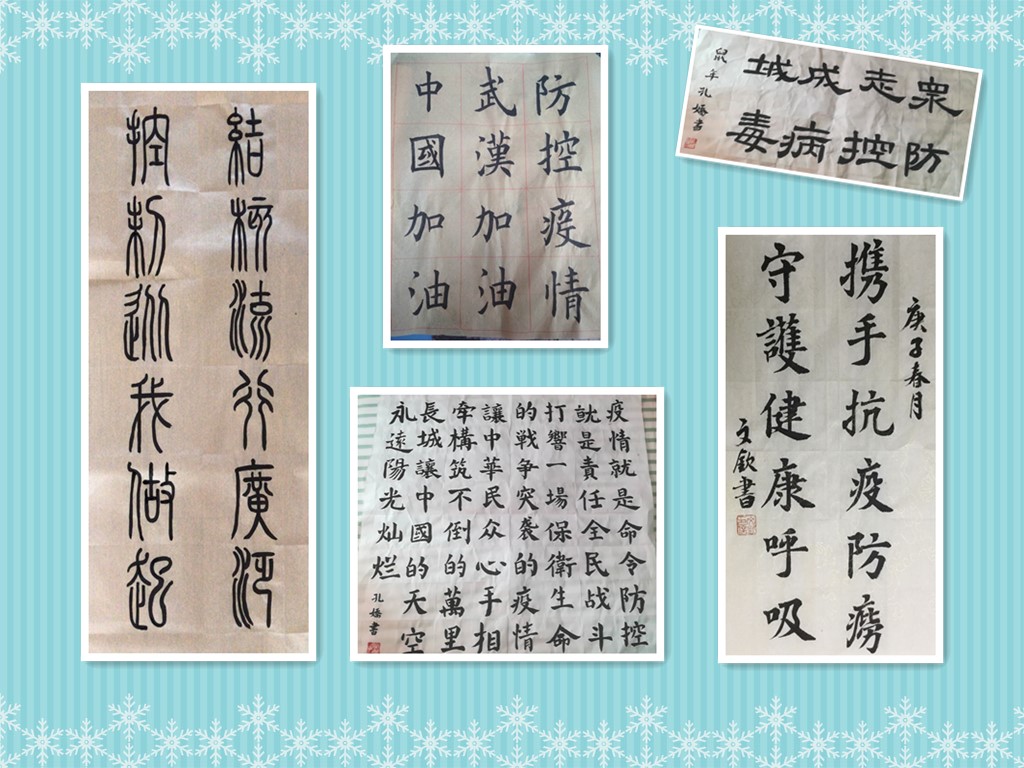 結核流行廣泛
控制從我做起
防控疫情
武漢加油
中國加油
衆志成城
防控病毒
鼠年孔書
疫情就是命令防控
就是責任全民战斗
打響一場保衛生命
的戦争突襲的疫情
讓中華民众心手相
牵構筑不倒的萬里
長城讓中國的天空
永遠陽光灿烂
孔書
庚子春月
携手抗疫防癆
守護健康呼吸
文欽書